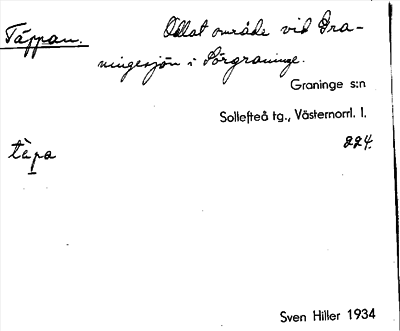 Täppan. Odlat område vid Gra-
ningesjön i Sörgraninge.
Graninge s:n
Sollefteå tg., Västernorrl. l.
tàpa 224.
Sven Hiller 1934